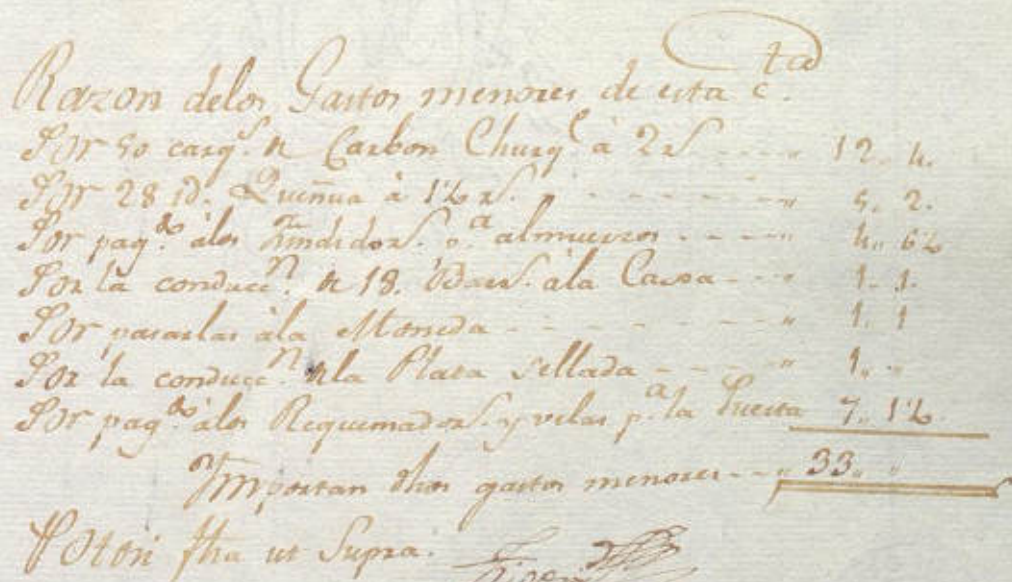 Razon delos Gastos menores de esta c.ta
Por 50 carg.s de Carbon Churq.l à 2 r.s 12. 4.
Por 28 id. Quinua à 1½ r.s 5. 2.
Por pag.dos álos Fundidor.s p.a almuerzos 4. 6½
Por la conducc.n de 18. àla Cassa 1. 1.
Por pasarlas àla Moneda 1. 1
Por la conducc.n dela Plata sellada 1.
Por pag.dos álos Requemador.s y velas p.a la Puerta 7. 1½.
Importan dhos gastos menores 33.
Potosi fha ut Supra.